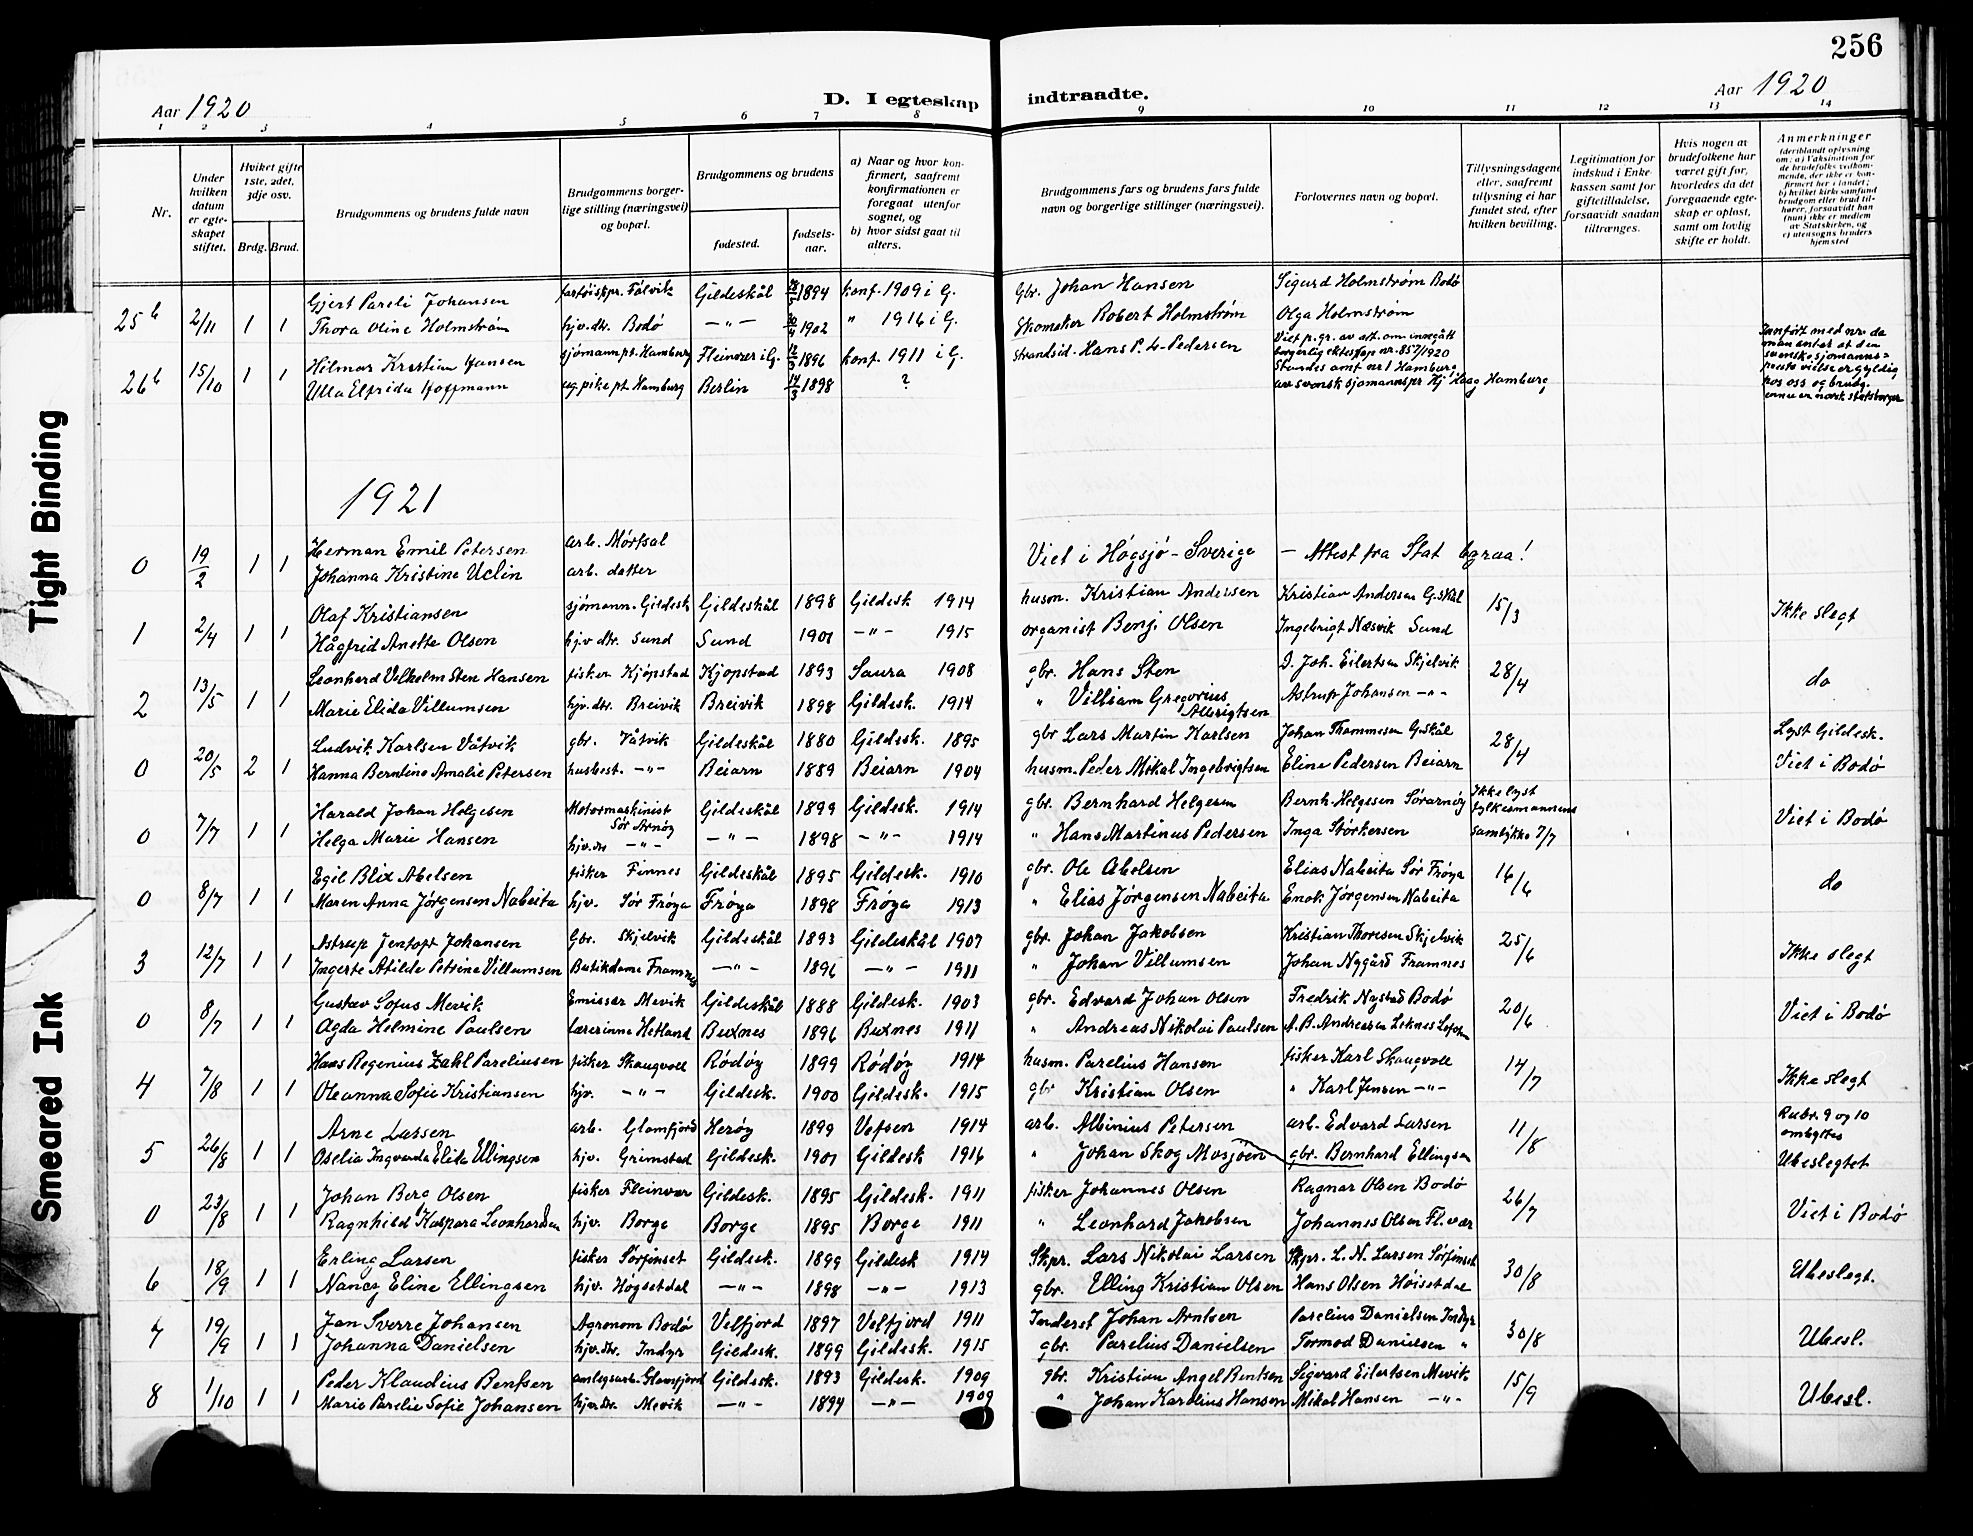 256
Aar 1920
D. I egteskap indtraadte.
Aar 1920
1 2 3 4 5 6 7 8 9 10 11 12 13 14
Nr.
Under hvilken datum er egteskapet stiftet.
Hviket gifte 1ste, 2det, 3dje osv.
Brdg. Brud.
Brudgommens og brudens fulde navn
Brudgommens borgerlige stilling (næringsvei) og bopæl.
Brudgommens og brudens
fødested.
fødselsaar.
a) Naar og hvor konfirmert, saafremt konfirmationen er foregaat utenfor sognet, og
b) hvor sidst gaat til alters.
Brudgommens fars og brudens fars fulde navn og borgerlige stillinger (næringsvei).
Forlovernes navn og bopæl.
Tillysningsdagene eller, saafremt tillysning ei har fundet sted, efter hvilken bevilling.
Legitimation for indskud i Enkekassen samt for giftetilladelse, forsaavidt saadan tiltrænges.
Hvis nogen av brudefolkene har været gift før, hvorledes da det foregaaende egteskap er opløst, samt om lovlig skifte er holdt.
Anmerkninger
(deriblandt oplysning om: a) Vaksination for de brudefolks vedkommende, der ikke er konfirmert her i landet; b) hvilket kirkesamfund brudgom eller brud tilhører, forsaavidt han (hun) ikke er medlem av Statskirken, og c) utensogns bruders hjemsted
Gjert Pareli Johansen fartøiskpr. Fålvik Gildeskål 1894 konf. 1909 i G. Gbr. Johan Hansen Sigurd Holmstrøm Bodø
25 b 2/11 1 1 Thora Oline Holmstrøm hjv. dtr. Bodø —"— 1902 " 1916 i G. Skomaker Robert Holmstrøm Olga Holmstrøm
Hilmar Kristian Hansen sjømann pt. Hamburg Fleinvær i G. 1896 konf. 1911 i G. strandsid. Hans P. L. Pedersen Viet p. gr. av att. om inngått borgerlig ekteskap nr. 857/1920 Standes amt nr 1 Hamburg av svensk sjømannspr Hj Haag Hamburg
26 b 15/10 1 1 Ulla Elfrida Hoffmann ug. pike pt Hamburg Berlin 14/3 1898 ?
Innført med nr. da man antar at den svenske sjømannsprests vielse er gyldig hos oss og brudg. ennu er norsk statsborger
1921
Herman Emil Petersen arb. Mørsal
0 19/2 1 1 Johanna Kristine Uclin arb. datter Viet i Högsjö - Sverige — Attest fra Stat
Olaf Kristiansen sjømann. Gildesk Gildeskål 1898 Gildesk 1914 husm. Kristian Andersen Kristian Andersen G.skål
1 2/4 1 1 Hågfrid Anette Olsen hjv dtr. Sund Sund 1901 —"— 1915 organist Benj. Olsen Ingebrigt Næsvik Sund 15/3 Ikke slegt
Leonhard Vilhelm Sten Hansen fisker Kjøpstad Kjøpstad 1893 Saura 1908 gbr. Hans Sten D. Joh. Eilertsen Skjelvik
2 13/5 1 1 Marie Elida Villumsen hjv. dtr. Breivik Breivik 1898 Gildesk. 1914 " Villiam Gregorius Albrigtsen Astrup Johansen —"— 28/4 do
Ludvik Karlsen Våtvik gbr. Våtvik Gildeskål 1880 Gildesk. 1895 gbr Lars Martin Karlsen Johan Thommesen G.skål Lyst Gildesk.
0 20/5 2 1 Hanna Berntine Amalie Petersen husbest. —"— Beiarn 1889 Beiarn 1904 husm. Peder Mikal Ingebrigtsen Eline Pedersen Beiarn 28/4 Viet i Bodø
Harald Johan Helgesen Motormaskinist Sør Arnøy Gildeskål 1899 Gildesk. 1914 gbr. Bernhard Helgesen Bernh. Helgesen Sørarnøy Ikke lyst fylkesmannens
0 7/7 1 1 Helga Marie Hansen hjv. dtr —"— —"— 1898 —"— 1914 " Hans Martinus Pedersen Inga Størkersen samtykke 7/7 Viet i Bodø
Egil Blix Abelsen fisker Finnes Gildeskål 1895 Gildesk. 1910 gbr. Ole Abelsen Elias Nabeita Sør Frøya
0 8/7 1 1 Maren Anna Jørgensen Nabeita hjv. Sør Frøya Frøya 1898 Frøya 1913 " Elias Jørgensen Nabeita Enok Jørgensen Nabeita 16/6 do
Astrup Jentoft Johansen Gbr. Skjelvik Gildeskål 1893 Gildeskål 1907 gbr. Johan Jakobsen Kristian Thoresen Skjelvik
3 12/7 1 1 Ingerte Atilde Petrine Villumsen Butikdame Framnes —"— 1896 —"— 1911 " Johan Villumsen Johan Nygård Framnes 25/6 Ikke slegt
Gustav Sofus Mevik Emissær Mevik Gildeskål 1888 Gildesk. 1903 gbr. Edvard Johan Olsen Fredrik Nystad Bodø
0 8/7 1 1 Agda Helmine Paulsen Lærerinne Hetland Buxnes 1896 Buxnes 1911 " Andreas Nikolai Paulsen A. B. Andreassen Leknes Lofoten 20/6 Viet i Bodø
Hans Regenius Zahl Pareliusen fisker Skaugvoll Rødøy 1899 Rødøy 1914 husm. Parelius Hansen fisker Karl Skaugvoll
4 7/8 1 1 Oleanna Sofie Kristiansen hjv. —"— Gildesk. 1900 Gildesk. 1915 gbr Kristian Olsen " Karl Jensen —"— 14/7 Ikke slegt
Arne Larsen arb. Glomfjord Herøy 1899 Vefsen 1914 arb. Albinius Petersen arb. Edvard Larsen Rubr. 9 og 10 ombyttes
5 26/8 1 1 Oselia Ingvarda Elida Ellingsen hjv. Grimstad Gildesk. 1901 Gildesk 1916 " Johan Skog Mosjøen gbr. Bernhard Ellingsen 11/8 Ubeslegtet
Johan Berg Olsen fisker Fleinvær Gildesk. 1895 Gildesk. 1911 fisker Johannes Olsen Ragnar Olsen Bodø
0 23/8 1 1 Ragnhild Kaspara Leonhardsen hjv. Borge Borge 1895 Borge 1911 " Leonhard Jakobsen Johannes Olsen Fl.vær 26/7 Viet i Bodø
Erling Larsen fisker Sørfinset Gildesk. 1899 Gildesk 1914 Skpr. Lars Nikolai Larsen Skpr. L. N. Larsen Sørfinset
6 18/9 1 1 Nancy Eline Ellingsen hjv. Høgsetdal —"— 1898 —"— 1913 gbr. Elling Kristian Olsen Hans Olsen Høisetdal 30/8 Ubeslegt.
Jan Sverre Johansen Agronom Bodø Velfjord 1897 Velfjord 1911 Inderst Johan Arntsen Parelius Danielsen Indyr
7 19/9 1 1 Johanna Danielsen hjv. dtr. Indyr Gildesk. 1899 Gildesk. 1915 gbr. Parelius Danielsen Tormod Danielsen " 30/8 Ubesl.
Peder Klaudius Bentsen anlegsarb. Glomfjord Gildesk. 1893 Gildesk. 1909 gbr. Kristian Angel Bentsen Sigvard Eilertsen Mevik
8 1/10 1 1 Marie Parelie Sofie Johansen hjv. dtr. Mevik —"— 1894 —"— 1909 " Johan Karolius Hansen Mikal Hansen —"— 15/9 Ubesl.
Tight Binding
Smeared Ink